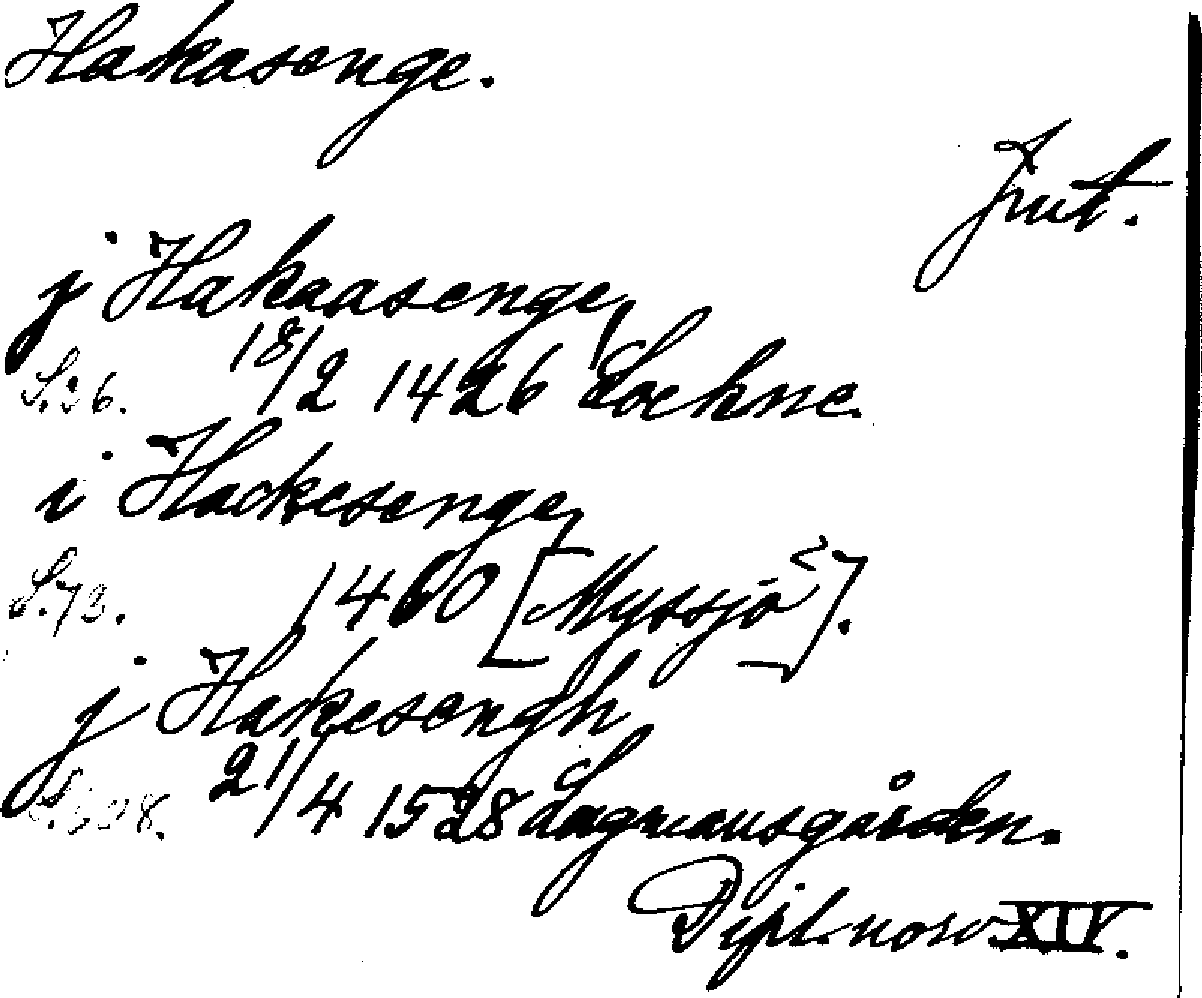 Hakasenge.
Jmt.
j Hakaasenge,
S. 36. 18/2 1426 Lockne.
i Hackesenge,
S. 73. 1460 [Myssjö?].
j Hakesengh,
21/4 1528 Lagmansgården.
Dipl. norv. XIV.